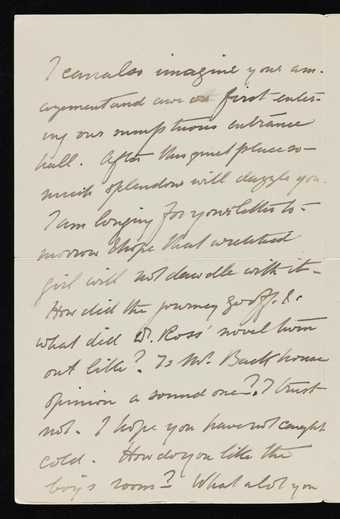 I can also imagine your am-
azement and awe at first enter-
ing our sumptuous entrance
hall. After this quiet place so
much splendour will dazzle you.
I am longing for your letter to-
morrow & hope that wretched
girl will not dawdle with it -
How did the journey go off. &
what did Ross' novel turn
out like? Is Mr. Backhouse
opinion a sound one? I trust
not. I hope you have not caught
cold. How do you like the
boys room? What a lot you